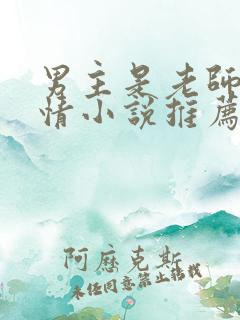 男主是老師
情小說推薦
阿歷克斯
未经同意禁止转载